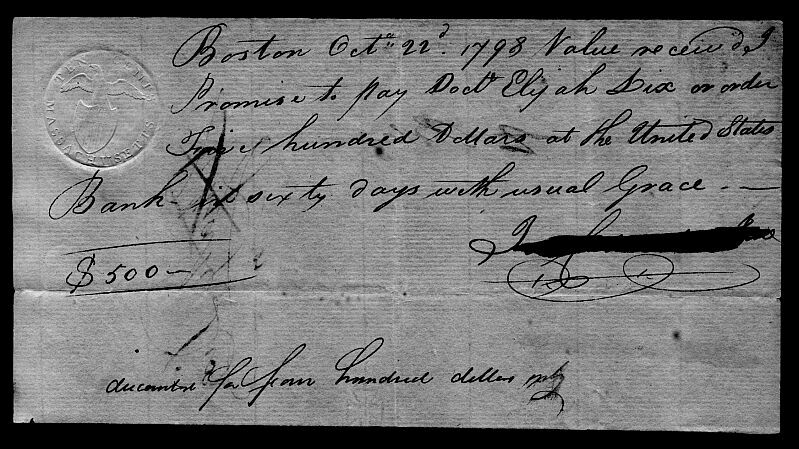 TEN CENTS
MASSACHUSETTS
Boston Octr. 22d. 1798 Value receiv'd, I
Promise to pay Doctr Elijah Dix or order
Five hundred Dollars at the United States
Bank in sixty days with usual Grace
$500
for four hundred dollars only